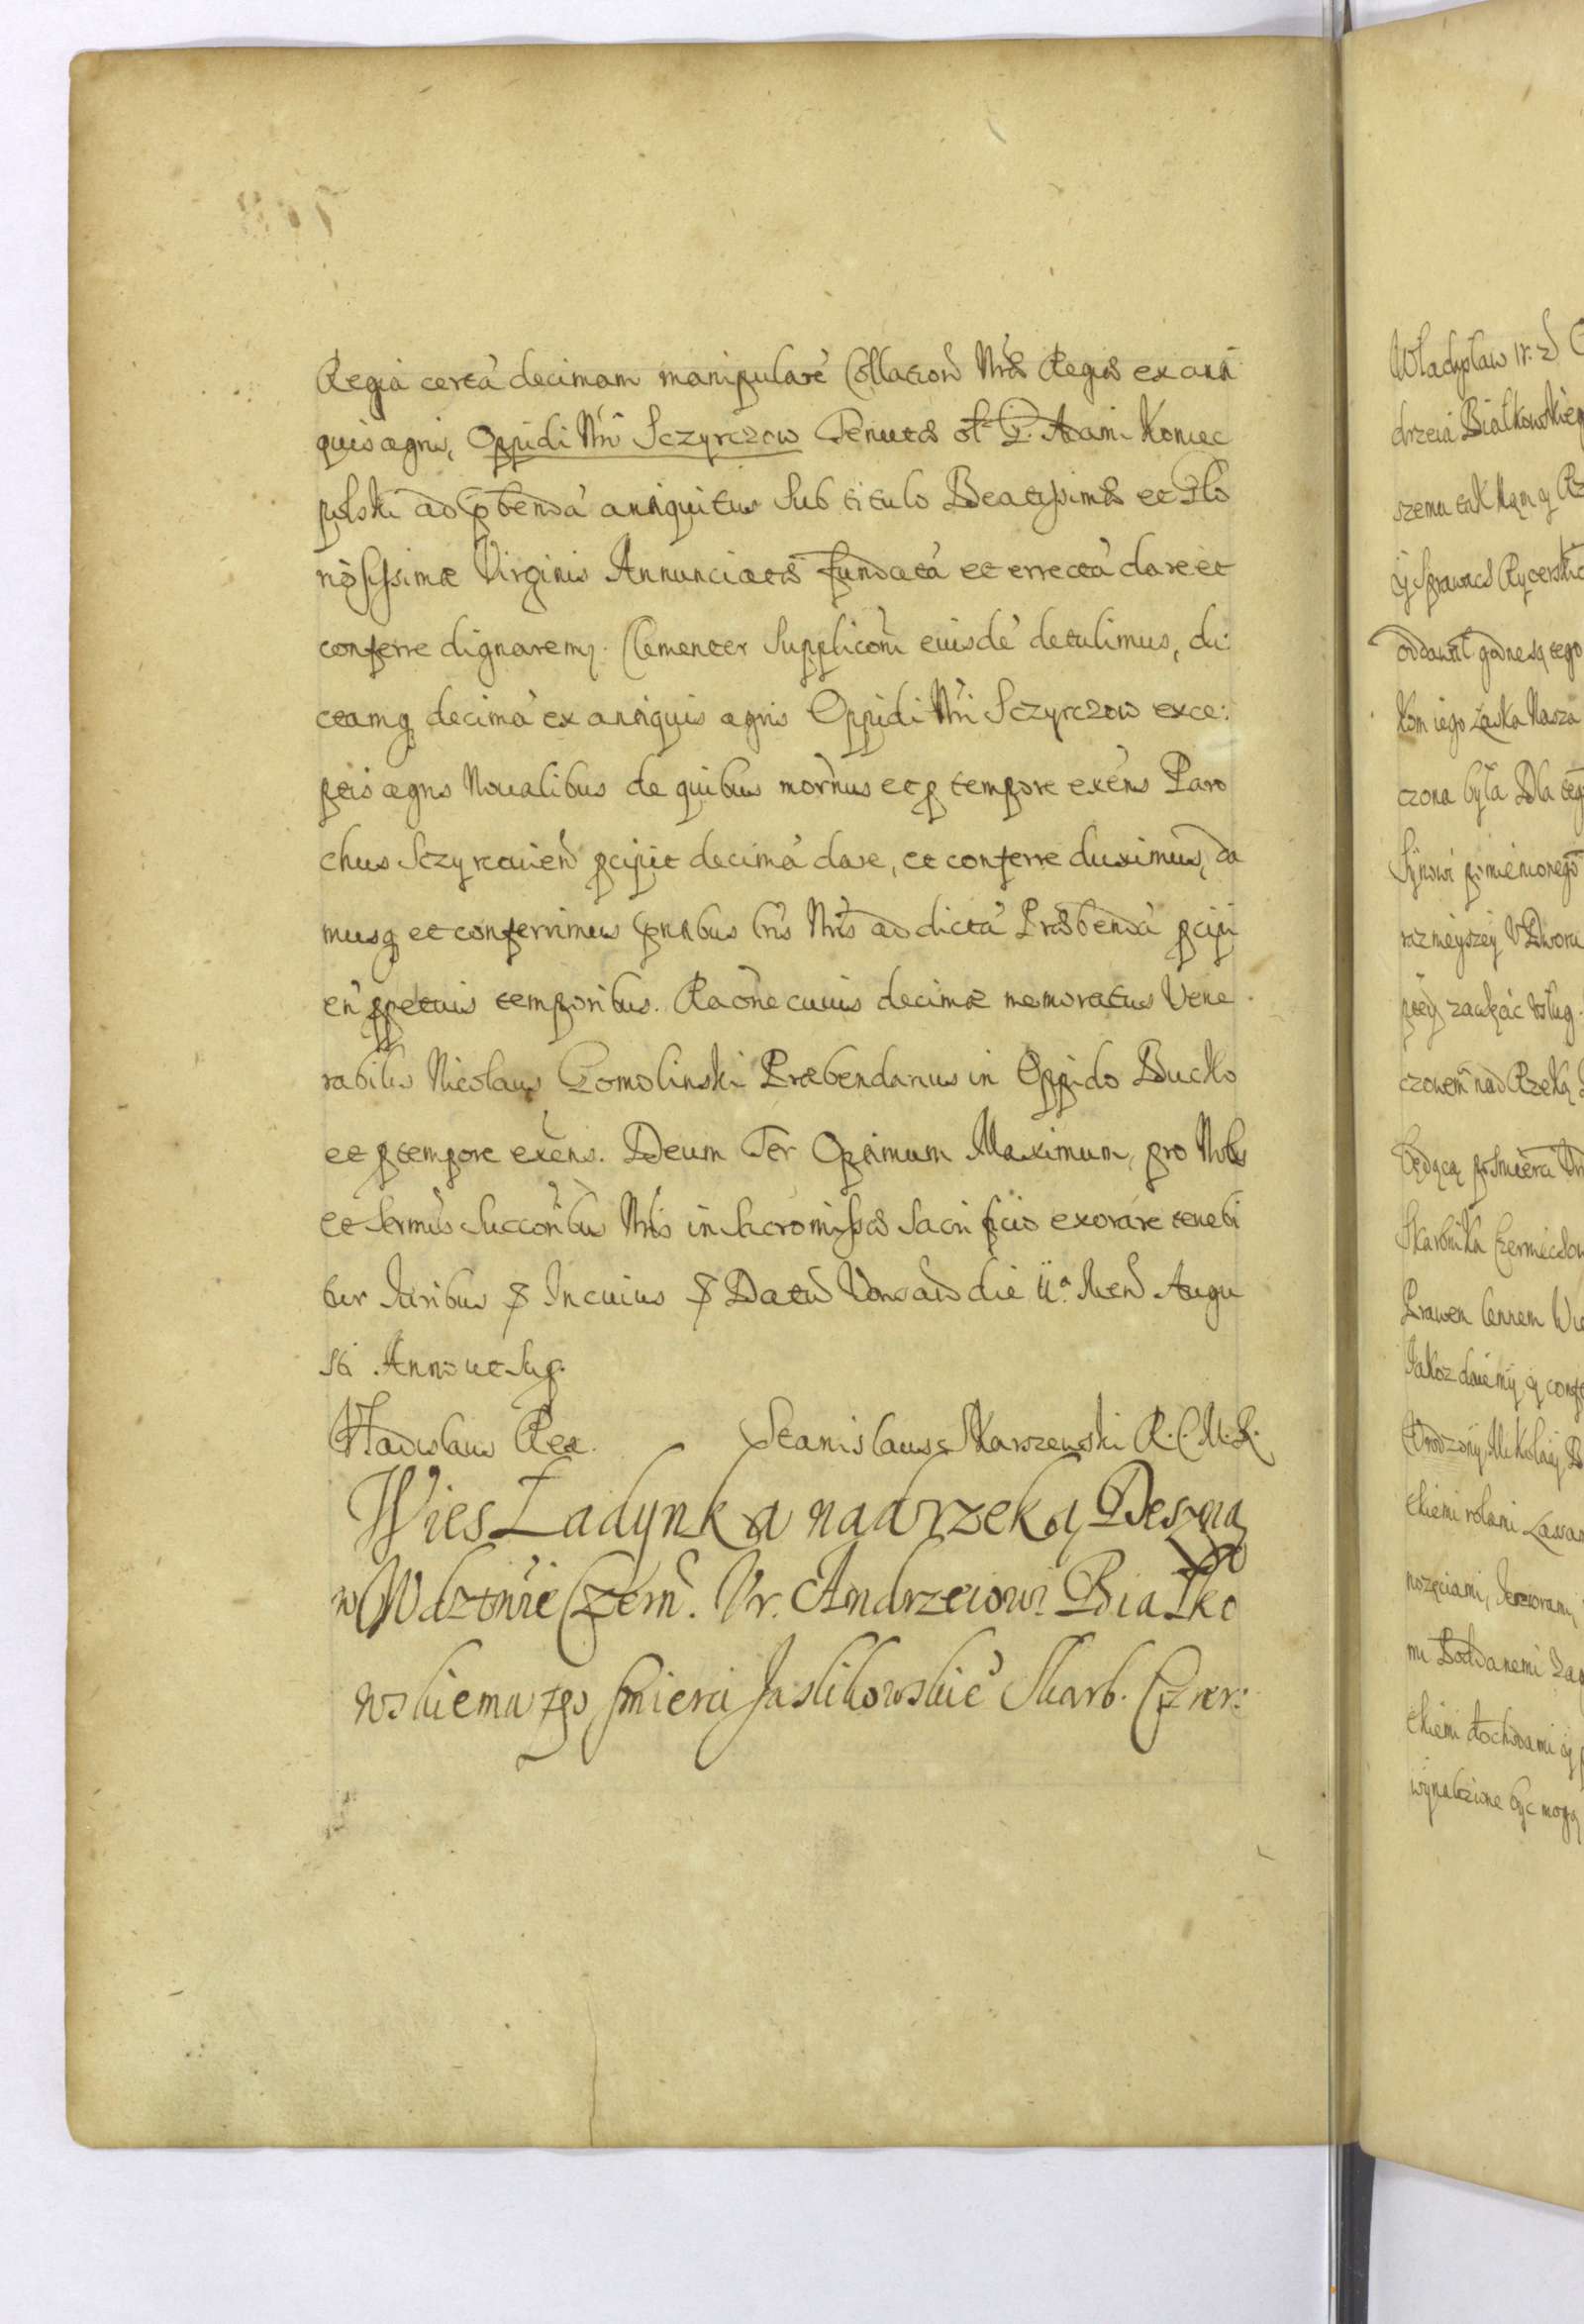 Regia certá decimam manipularé Collation Nræ Regiæ ex anti
quis agris, Oppidi Nri Sczyrczow Tenutæ ol. G. Adami Koniec
polski ad pbendá antiquitus sub titulo Beatissimæ et Glo
riosissimæ Virginis Annunciatæ fundatá et errectá dare et
conferre dignaremq. Clementer Supplicõni eiusdé detulimus, di:
ctamq decimá ex antiquis agris Oppidi Nri Sczyrczow exce:
ptis agris Noualibus de quibus mornus et p tempore exens Paro
chus Sczyrcouien pcipit decimá dare, et conferre duximus, da
musq et conferrimus pntibus lris Nris ad dictá Præbendá pcipi
en ppetuis temporibus. Raõne cuius decimæ memoratus Vene
rabilis Nicolaus Gomolinski Præbendarius in Oppido Bucko
et p tempore exens. Deum Ter Optimum Maximum, pro Nobis
et Sermis Succoribus Nris in Sacro missæ Sacrificio exorare tenebi
tur Iuribus Incuius Datũ Varsaũ die ii.a Men Augu
sti. Anno ut Sup.
Vladislaus Rex. Stanislaus Skarszewski R. C. M. R.
Wies Ładynka nad rzeką Desną
w Wdztwie Czern. Vr. Andrzeiowi Białko
wskiemu po smierci Jaslikowskié Skarb. Czer:
Władysław IV. z
drzeia Białkowskieg
szemu tak Nam y Rz
y Sprawach Rycerskic
oddawał godne są tego
kom iego Łaska Nasza
czona była Dla teg
Synowi pomienionego
raznieyszey V Dworu
ptey zawżać vsług.
czowem nad Rzeką
będącą po Smierci
Skarbnika Czerniechow
Prawem lennem Wie
Jakoz daiemy y conf
Vrodzony Mikołaiy B
tkiemi rolami Łassam
nozęciami, Jezioramy
mi Poddanemi Zag
tkiemi dochodami y
wynalezione byc mogą